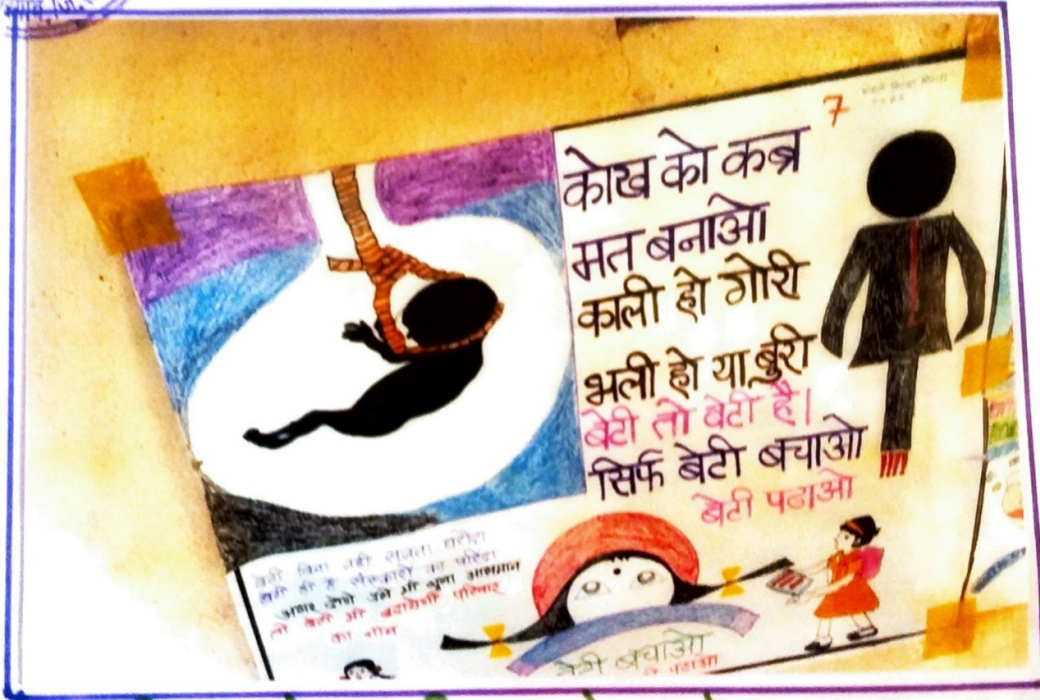 7
कोख को कब्र
मत बनाओ
काली हो गोरी
भली हो या बुरी
बेटी तो बेटी है।
सिर्फ बेटी बचाओ
बेटी पढाओ
बेटी बिना नही सजता घरोंदा
बेटी ही है संस्कारो का परिंदा
अगर दोगे उसे भी खुला आसमान
तो बेटी भी बढायेगी परिवार
का नाम
बेटी बचाओ